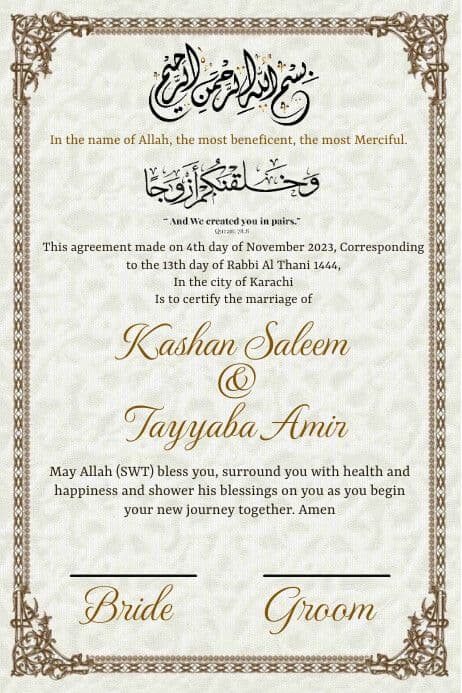 بسم الله الرحمن الرحيم
In the name of Allah, the most beneficent, the most Merciful.
وَخَلَقْنَٰكُمْ أَزْوَٰجًا
“ And We created you in pairs.”
Quran: 78:8
This agreement made on 4th day of November 2023, Corresponding
to the 13th day of Rabbi Al Thani 1444,
In the city of Karachi
Is to certify the marriage of
Kashan Saleem
&
Tayyaba Amir
May Allah (SWT) bless you, surround you with health and
happiness and shower his blessings on you as you begin
your new journey together. Amen
Bride Groom